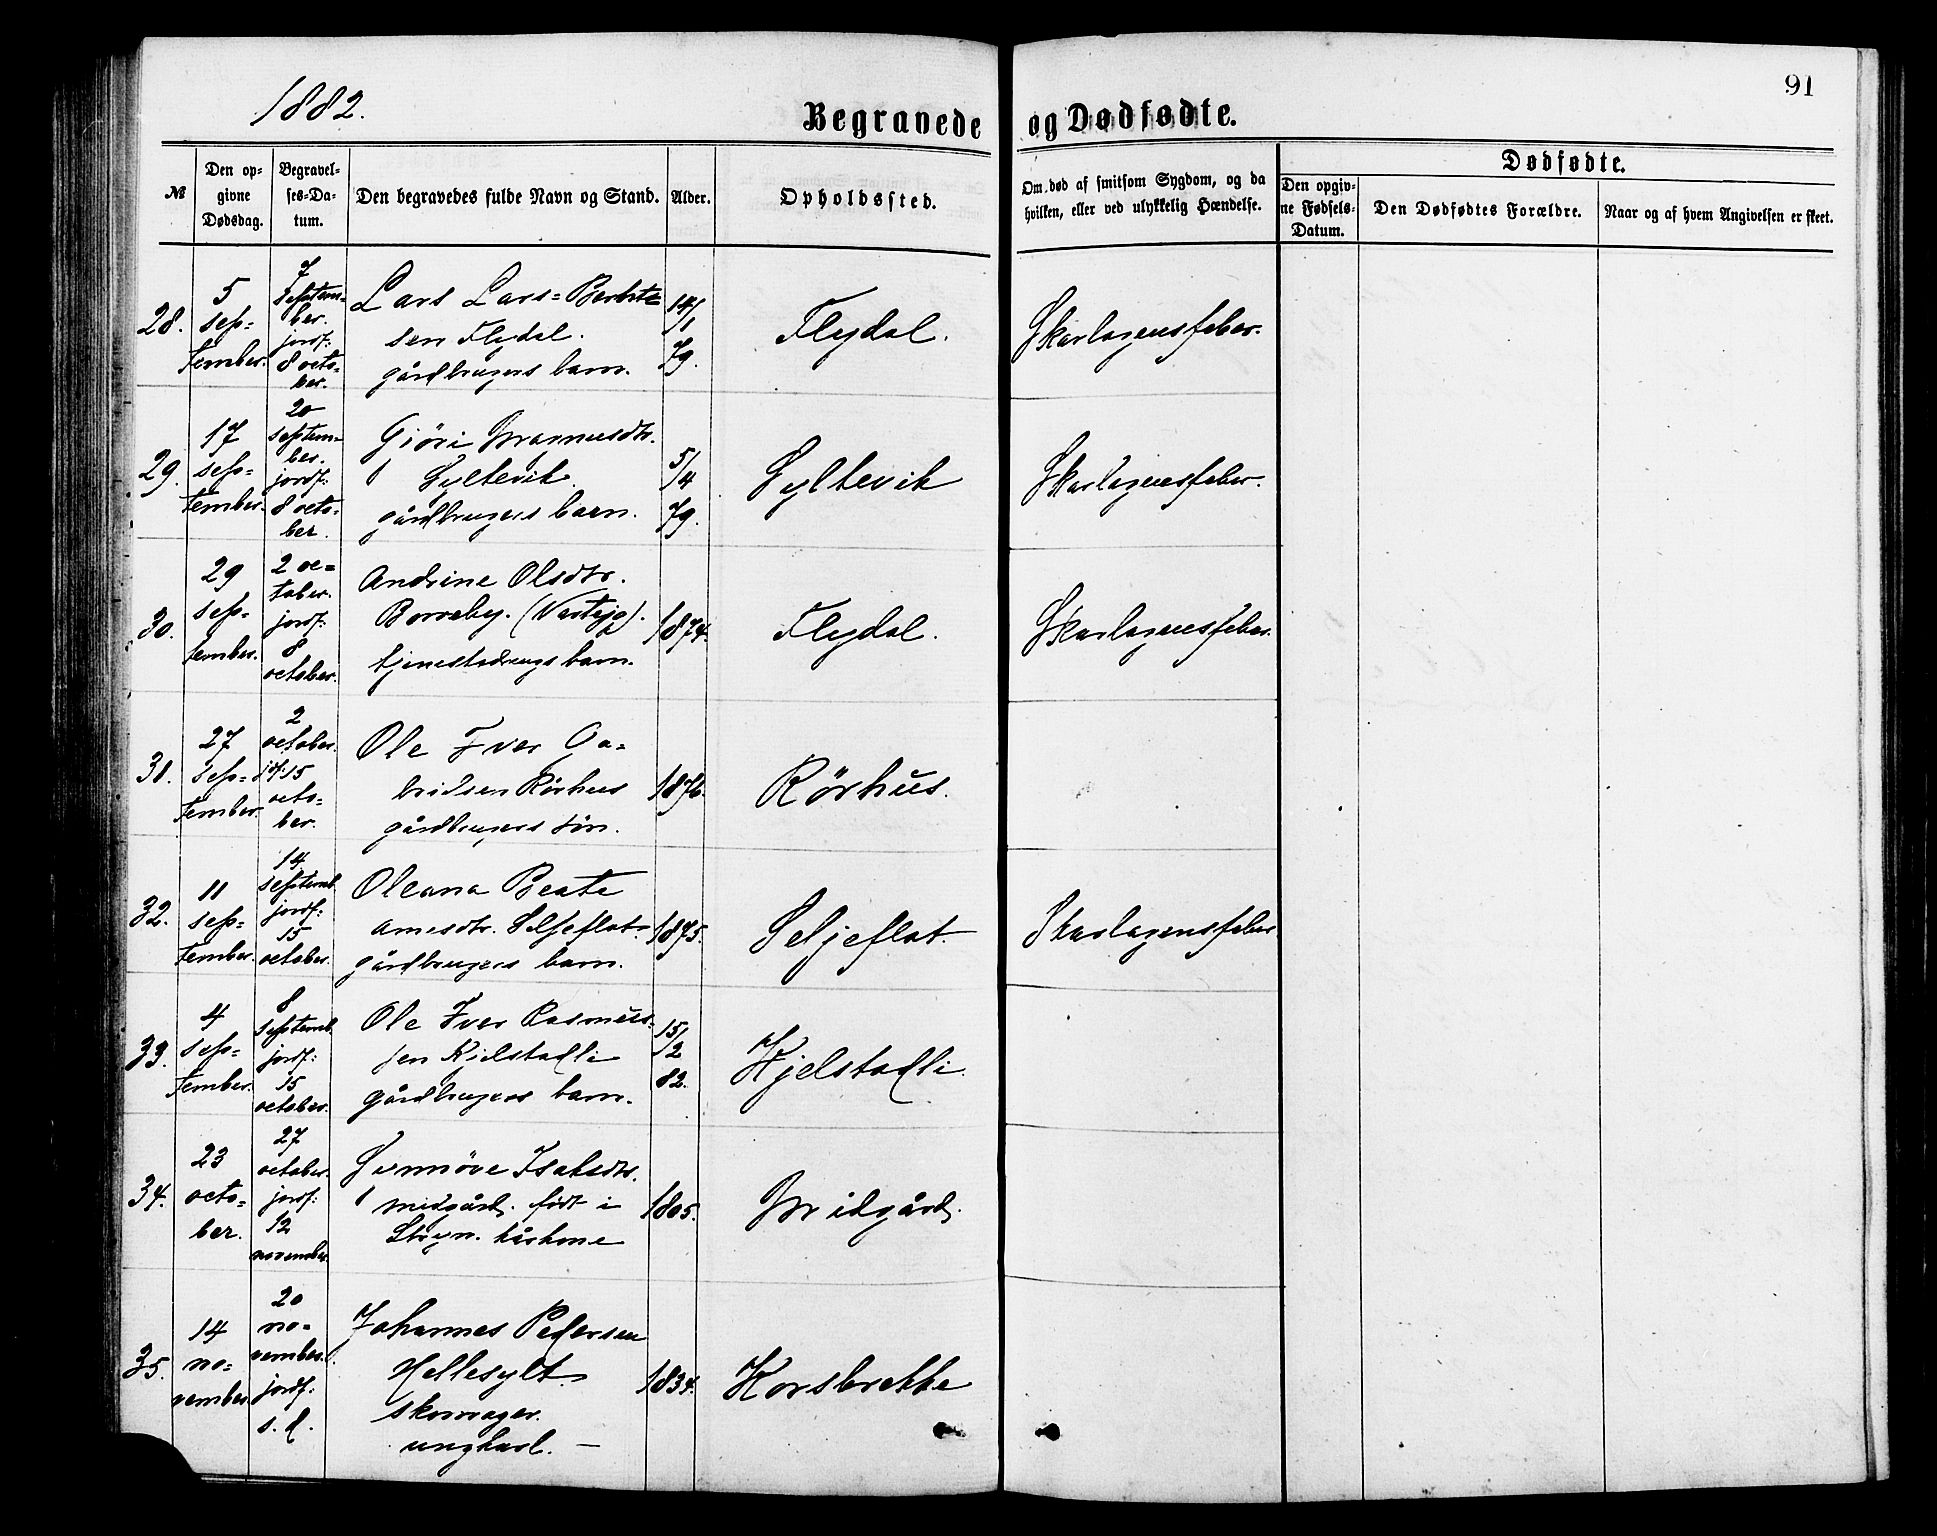 1882.
91
Begravede og Dødfødte.
№
Den op-
givne
Dødsdag.
Begravel-
ses-Da-
tum.
Den begravedes fulde Navn og Stand.
Alder.
Opholdssted.
Om død af smitsom Sygdom, og da
hvilken, eller ved ulykkelig Hændelse.
Dødfødte.
Den opgiv-
ne Fødsels-
Datum.
Den Dødfødtes Forældre.
Naar og af hvem Angivelsen er skeet.
28.
5
sep=
tember.
7
septem=
ber.
jordf:
8 octo-
ber.
Lars Lars=
sen Flydal.
gårdbrugers barn.
14/1
79.
Flydal.
Skarlagensfeber.
29.
17
sep=
tember.
20
septem=
ber.
jordf:
8 octo-
ber.
Gjöri Magnusdtr.
Syltevik
gårdbrugers barn.
5/4
79.
Syltevik
Skarlagensfeber.
30.
29
sep=
tember.
2 oc=
tober.
jordf:
8
october.
Andrine Olsdtr.
tjenestedrengs barn.
1874.
Flydal.
Skarlagensfeber.
31.
27
sep=
tember.
2
october.
jf: 15
octo-
ber.
Ole Iver Ga=
brielsen Rörhus
gårdbrugers sön.
1876.
Rörhus.
32.
11
sep=
tember.
14
septemb.
jordf:
15
october.
Oleana Beate
Arnesdtr. Seljeflot.
gårdbrugers barn.
1875.
Seljeflot.
Skarlagensfeber
33.
4
sep=
tember.
8
septemb.
jordf:
15
october.
Ole Iver Rasmus=
sen Kjelstadli
gårdbrugers barn.
15/2
82.
Kjelstadli.
34.
23
octo-
ber.
27
october.
jordf:
12
november.
Synnöve Isaksdtr.
Midgård. födt i
Stryn. kårkone
1805.
Midgård.
35.
14
no=
vember.
20
no=
vember.
jordf:
s. d.
Johannes Pedersen
Hellesylt
skomager.
ungkarl. —
1834.
Korsbrekke